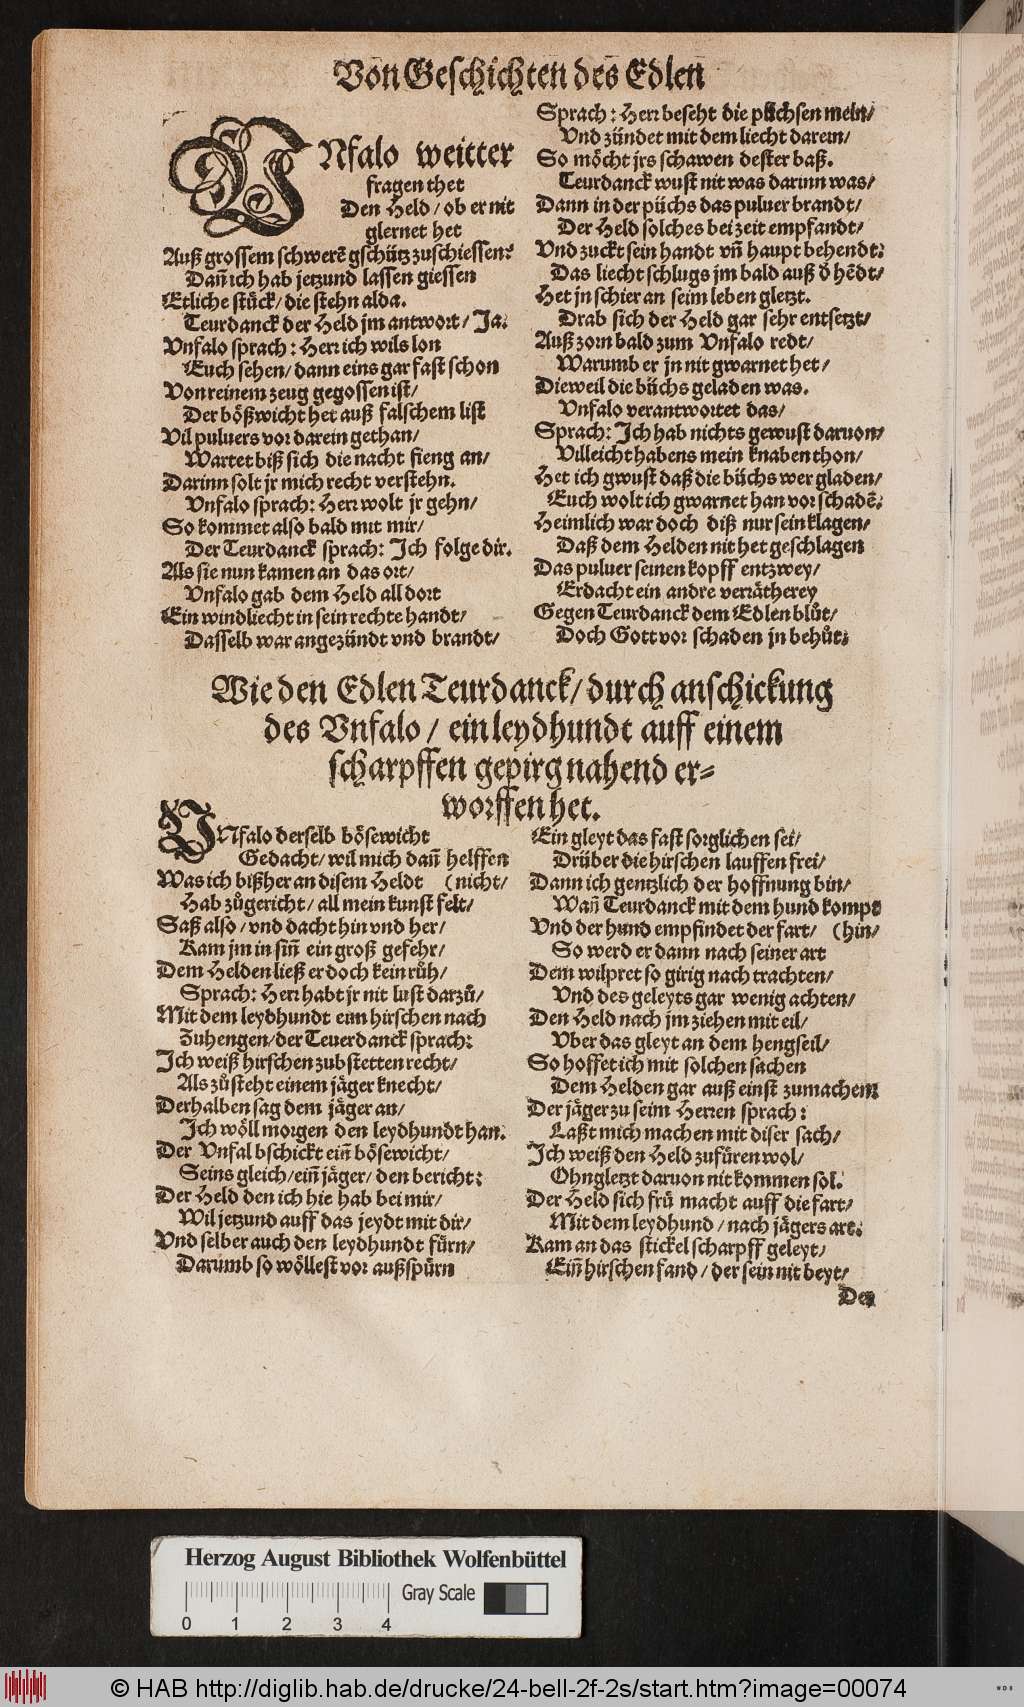 Von Geschichten des Edlen
VNfalo weitter
fragen thet
Den Held / ob er nit
glernet het
Auß grossem schwerē gschütz zuschiessen?
Dañ ich hab jetzund lassen giessen
Etliche stück / die stehn alda.
Teurdanck der Held jm antwort / Ja.
Vnfalo sprach: Herr ich wils lon
Euch sehen / dann eins gar fast schon
Von reinem zeug gegossen ist /
Der bößwicht het auß falschem list
Vil puluers vor darein gethan /
Wartet biß sich die nacht fieng an /
Darinn solt jr mich recht verstehn.
Vnfalo sprach: Herr wolt jr gehn /
So kommet also bald mit mir /
Der Teurdanck sprach: Ich folge dir.
Als sie nun kamen an das ort /
Vnfalo gab dem Held all dort
Ein windliecht in sein rechte handt /
Dasselb war angezündt vnd brandt /
Sprach: Herr beseht die püchsen mein /
Vnd zündet mit dem liecht darein /
So möcht jrs schawen dester baß.
Teurdanck wust nit was darinn was /
Dann in der püchs das puluer brandt /
Der Held solches bei zeit empfandt /
Vnd zuckt sein handt vñ haupt behendt:
Das liecht schlugs jm bald auß d̄ hēdt /
Het jn schier an seim leben gletzt.
Drab sich der Held gar sehr entsetzt /
Auß zorn bald zum Vnfalo redt /
Warumb er jn nit gwarnet het /
Dieweil die büchs geladen was.
Vnfalo verantwortet das /
Sprach: Ich hab nichts gewust daruon /
Villeicht habens mein knaben thon /
Het ich gwust daß die büchs wer gladen /
Euch wolt ich gwarnet han vor schadē.
Heimlich war doch diß nur sein klagen /
Daß dem Helden nit het geschlagen
Das puluer seinen kopff entzwey /
Erdacht ein andre verrätherey
Gegen Teurdanck dem Edlen blůt /
Doch Gott vor schaden jn behůt.
Wie den Edlen Teurdanck / durch anschickung
des Vnfalo / ein leydhundt auff einem
scharpffen gepirg nahend er=
worffen het.
VNfalo derselb bösewicht
Gedacht / wil mich dañ helffen
Was ich bißher an disem Heldt (nicht /
Hab zůgericht / all mein kunst felt /
Saß also / vnd dacht hin vnd her /
Kam jm in siñ ein groß gefehr /
Dem Helden ließ er doch kein růh /
Sprach: Herr habt jr nit lust darzů /
Mit dem leydhundt eim hirschen nach
Zuhengen / der Teuerdanck sprach:
Ich weiß hirschen zubstetten recht /
Als zůsteht einem jäger knecht /
Derhalben sag dem jäger an /
Ich wöll morgen den leydhundt han.
Der Vnfal bschickt eiñ bösewicht /
Seins gleich / eiñ jäger / den bericht:
Der Held den ich hie hab bei mir /
Wil jetzund auff das jeydt mit dir /
Vnd selber auch den leydhundt fürn /
Darumb so wöllest vor außspürn
Ein gleyt das fast sorglichen sei /
Drüber die hirschen lauffen frei /
Dann ich gentzlich der hoffnung bin /
Wañ Teurdanck mit dem hund kompt
Vnd der hund empfindet der fart / (hin /
So werd er dann nach seiner art
Dem wilpret so girig nach trachten /
Vnd des geleyts gar wenig achten /
Den Held nach jm ziehen mit eil /
Vber das gleyt an dem hengseil /
So hoffet ich mit solchen sachen
Dem Helden gar auß einst zumachen.
Der jäger zu seim Herren sprach:
Laßt mich machen mit diser sach /
Ich weiß den Held zufüren wol /
Ohngletzt daruon nit kommen sol.
Der Held sich frü macht auff die fart /
Mit dem leydhund / nach jägers art.
Kam an das stickel scharpff geleyt /
Eiñ hirschen fand / der sein nit beyt /
Der
Herzog August Bibliothek Wolfenbüttel
Gray Scale
0 1 2 3 4
© HAB http://diglib.hab.de/drucke/24-bell-2f-2s/start.htm?image=00074